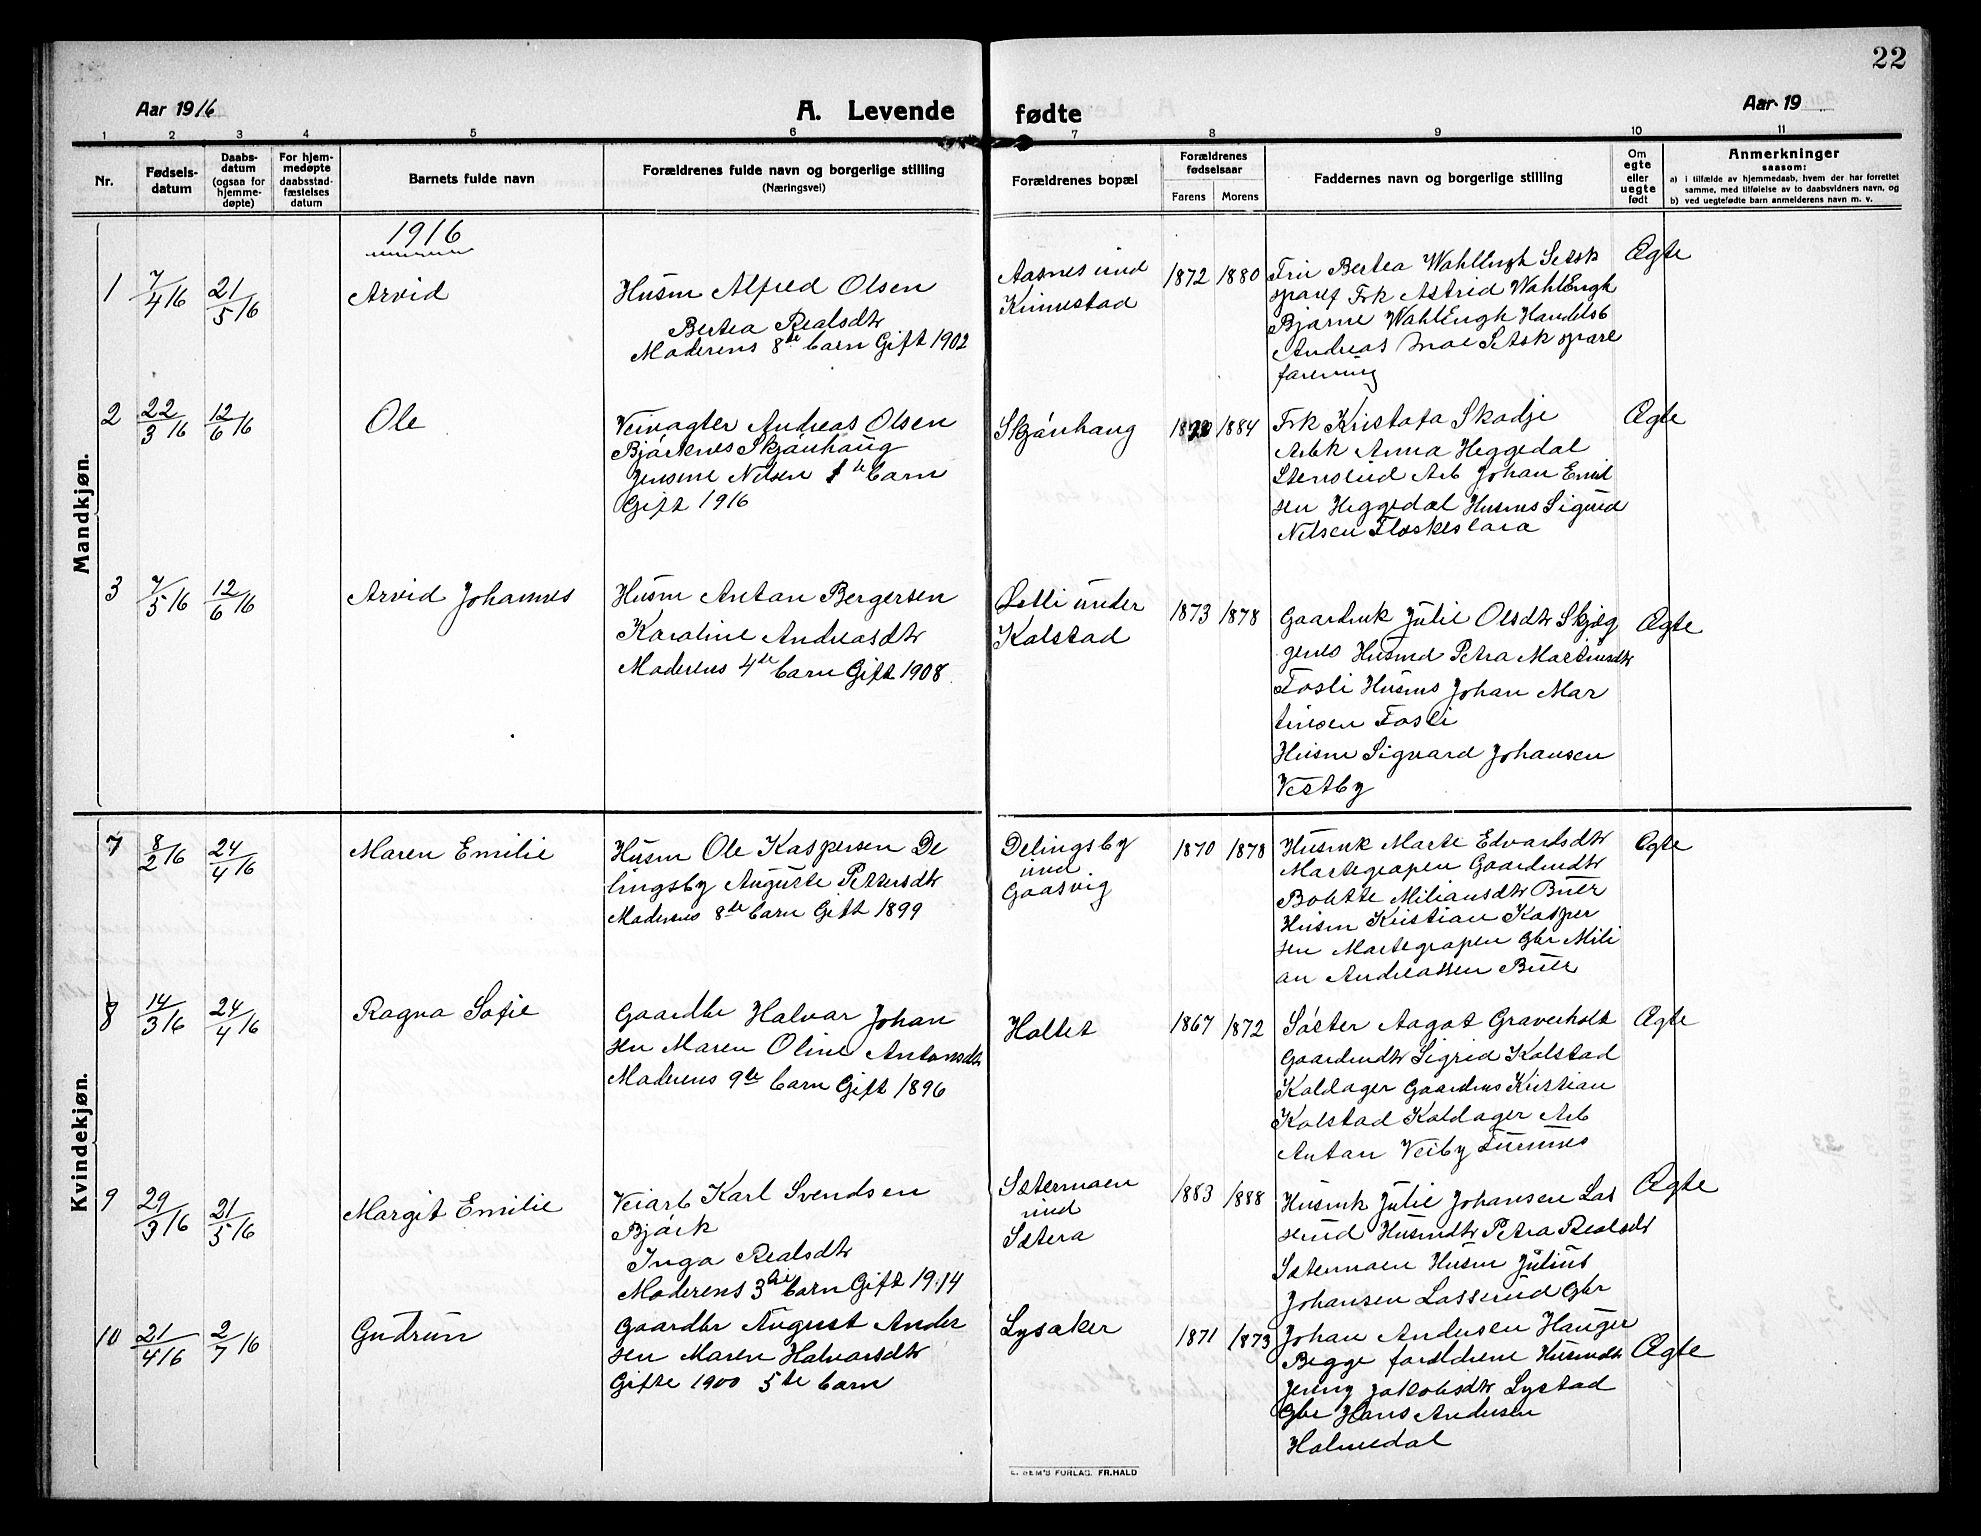 22
Aar 1916
A. Levende fødte
Aar 19
1 2 3 4 5 6 7 8 9 10 11
Nr.
Fødsels-
datum
Daabs-
datum
(ogsaa for
hjemme-
døpte)
For hjem-
medøpte
daabsstad-
fæstelses
datum
Barnets fulde navn
Forældrenes fulde navn og borgerlige stilling
(Næringsvei)
Forældrenes bopæl
Forældrenes
fødselsaar
Farens Morens
Faddernes navn og borgerlige stilling
Om
egte
eller
uegte
født
Anmerkninger
saasom:
a) i tilfælde av hjemmedaab, hvem der har forrettet
samme, med tilføielse av to daabsvidners navn, og
b) ved uegtefødte barn anmelderens navn m. v.
Mandkjøn.
1916
1
7/4 16
21/5 16
Arvid
Husm Alfred Olsen
Bertea Realsdtr
Moderens 8de barn Gift 1902
Aasnes und
Kinnestad
1872 1880
Fru Bertea WahlEngh Setsk
sparef Frk Astrid WahlEngh
Bjarne WahlEngh Handelsb
Andreas Moe Setsk spare
forening
Ægte
2
22/3 16
12/6 16
Ole
Veivogter Andreas Olsen
Bjørknes Skjønhaug
Jensine Nilsen 1te barn
Gift 1916
Skjønhaug
1884
Frk Kristofa Skodje
Arbk Anna Heggedal
Stenslud Arb Johan Emil
sen Heggedal Husms Sigurd
Nilsen Floskeslara
Ægte
3
7/5 16
12/6 16
Arvid Johannes
Husm Anton Bergersen
Karoline Andreasdtr
Moderens 4de barn Gift 1908
Letti under
Kolstad
1873 1878
Gaardmk Julie Olsdtr Skjøg
genes Husmd Petra Martinsdtr
Fosli Husms Johan Mar
tinsen Fosli
Husm Sigvard Johansen
Vestby
Ægte
Kvindekjøn.
7
8/2 16
24/4 16
Maren Emilie
Husm Ole Kaspersen De
lingsby Auguste Pettersdtr
Moderens 8de barn Gift 1899
Delingsby
und
Gaasvig
1870 1878
Husmk Marte Edvardsdtr
Martegrapen Gaardmdtr
Bolette Miliansdtr Buer
Husm Kristian Kasper
sen Martegrapen Gbr Mili
an Andreassen Buer
Ægte
8
14/3 16
24/4 16
Ragna Sofie
Gaardbr Halvar Johan
sen Maren Oline Antonsdtr
Moderens 9de barn Gift 1896
Holtet
1867 1872
Søster Aagot Graverholt
Gaardmdtr Sigrid Kolstad
Koldager Gaardms Kristian
Kolstad Koldager Arb
Anton Veiby Tunnes
Ægte
9
29/3 16
21/5 16
Margit Emilie
Veiarb Karl Svendsen
Bjørk
Inga Realsdtr
Moderens 3die barn Gift 1914
Sætermoen
und
Sætera
1883 1888
Husmk Julie Johansen Las
serud Husmdtr Petra Realsdtr
Sætermoen Husm Julius
Johansen Lasserud Gbr
Ægte
10
21/4 16
2/7 16
Gudrun
Gaardbr August Ander
sen Maren Halvarsdtr
Gifte 1900 5te barn
Lysaker
1871 1873
Johan Andersen Hauger
Begge forældrene Husmdtr
Jenny Jakobsdtr Lystad
Gbr Hans Andersen
Holmedal
Ægte
FORLAG. FR. HALD